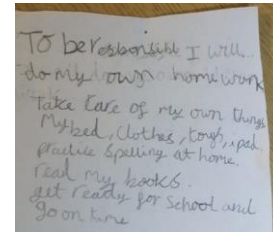 To be responsibl I will...
do my own home work
Take Care of my own things
My bed, Clothes, toys, ipad.
practice Spelling at home.
read my books.
get ready for School and
go on time